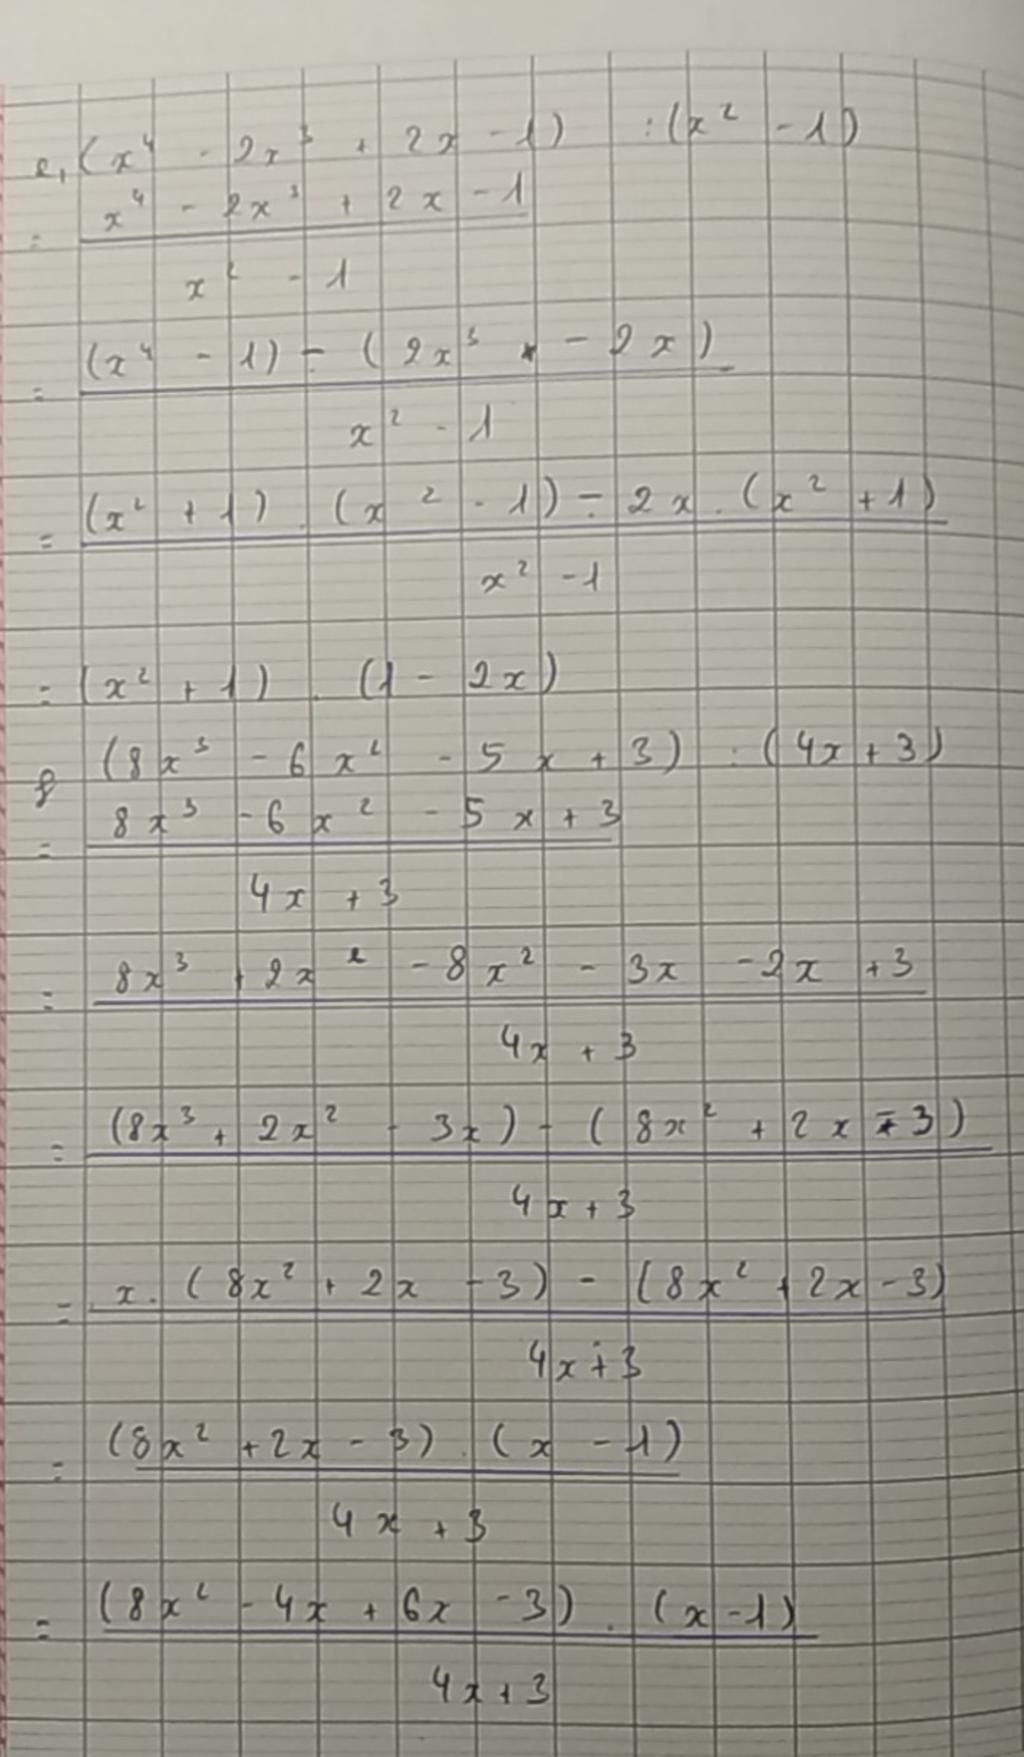 e, (x⁴ - 2x³ + 2x - 1) : (x² - 1)
= x⁴ - 2x³ + 2x - 1
x² - 1
= (x⁴ - 1) - (2x³ - 2x)
x² - 1
= (x² + 1) . (x² - 1) - 2x . (x² + 1)
x² - 1
= (x² + 1) . (1 - 2x)
f (8x³ - 6x² - 5x + 3) : (4x + 3)
= 8x³ - 6x² - 5x + 3
4x + 3
= 8x³ + 2x² - 8x² - 3x - 2x + 3
4x + 3
= (8x³ + 2x² - 3x) - (8x² + 2x - 3)
4x + 3
= x . (8x² + 2x - 3) - (8x² + 2x - 3)
4x + 3
= (8x² + 2x - 3) . (x - 1)
4x + 3
= (8x² - 4x + 6x - 3) . (x - 1)
4x + 3